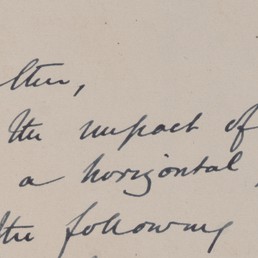 the impact of
a horizontal
the following